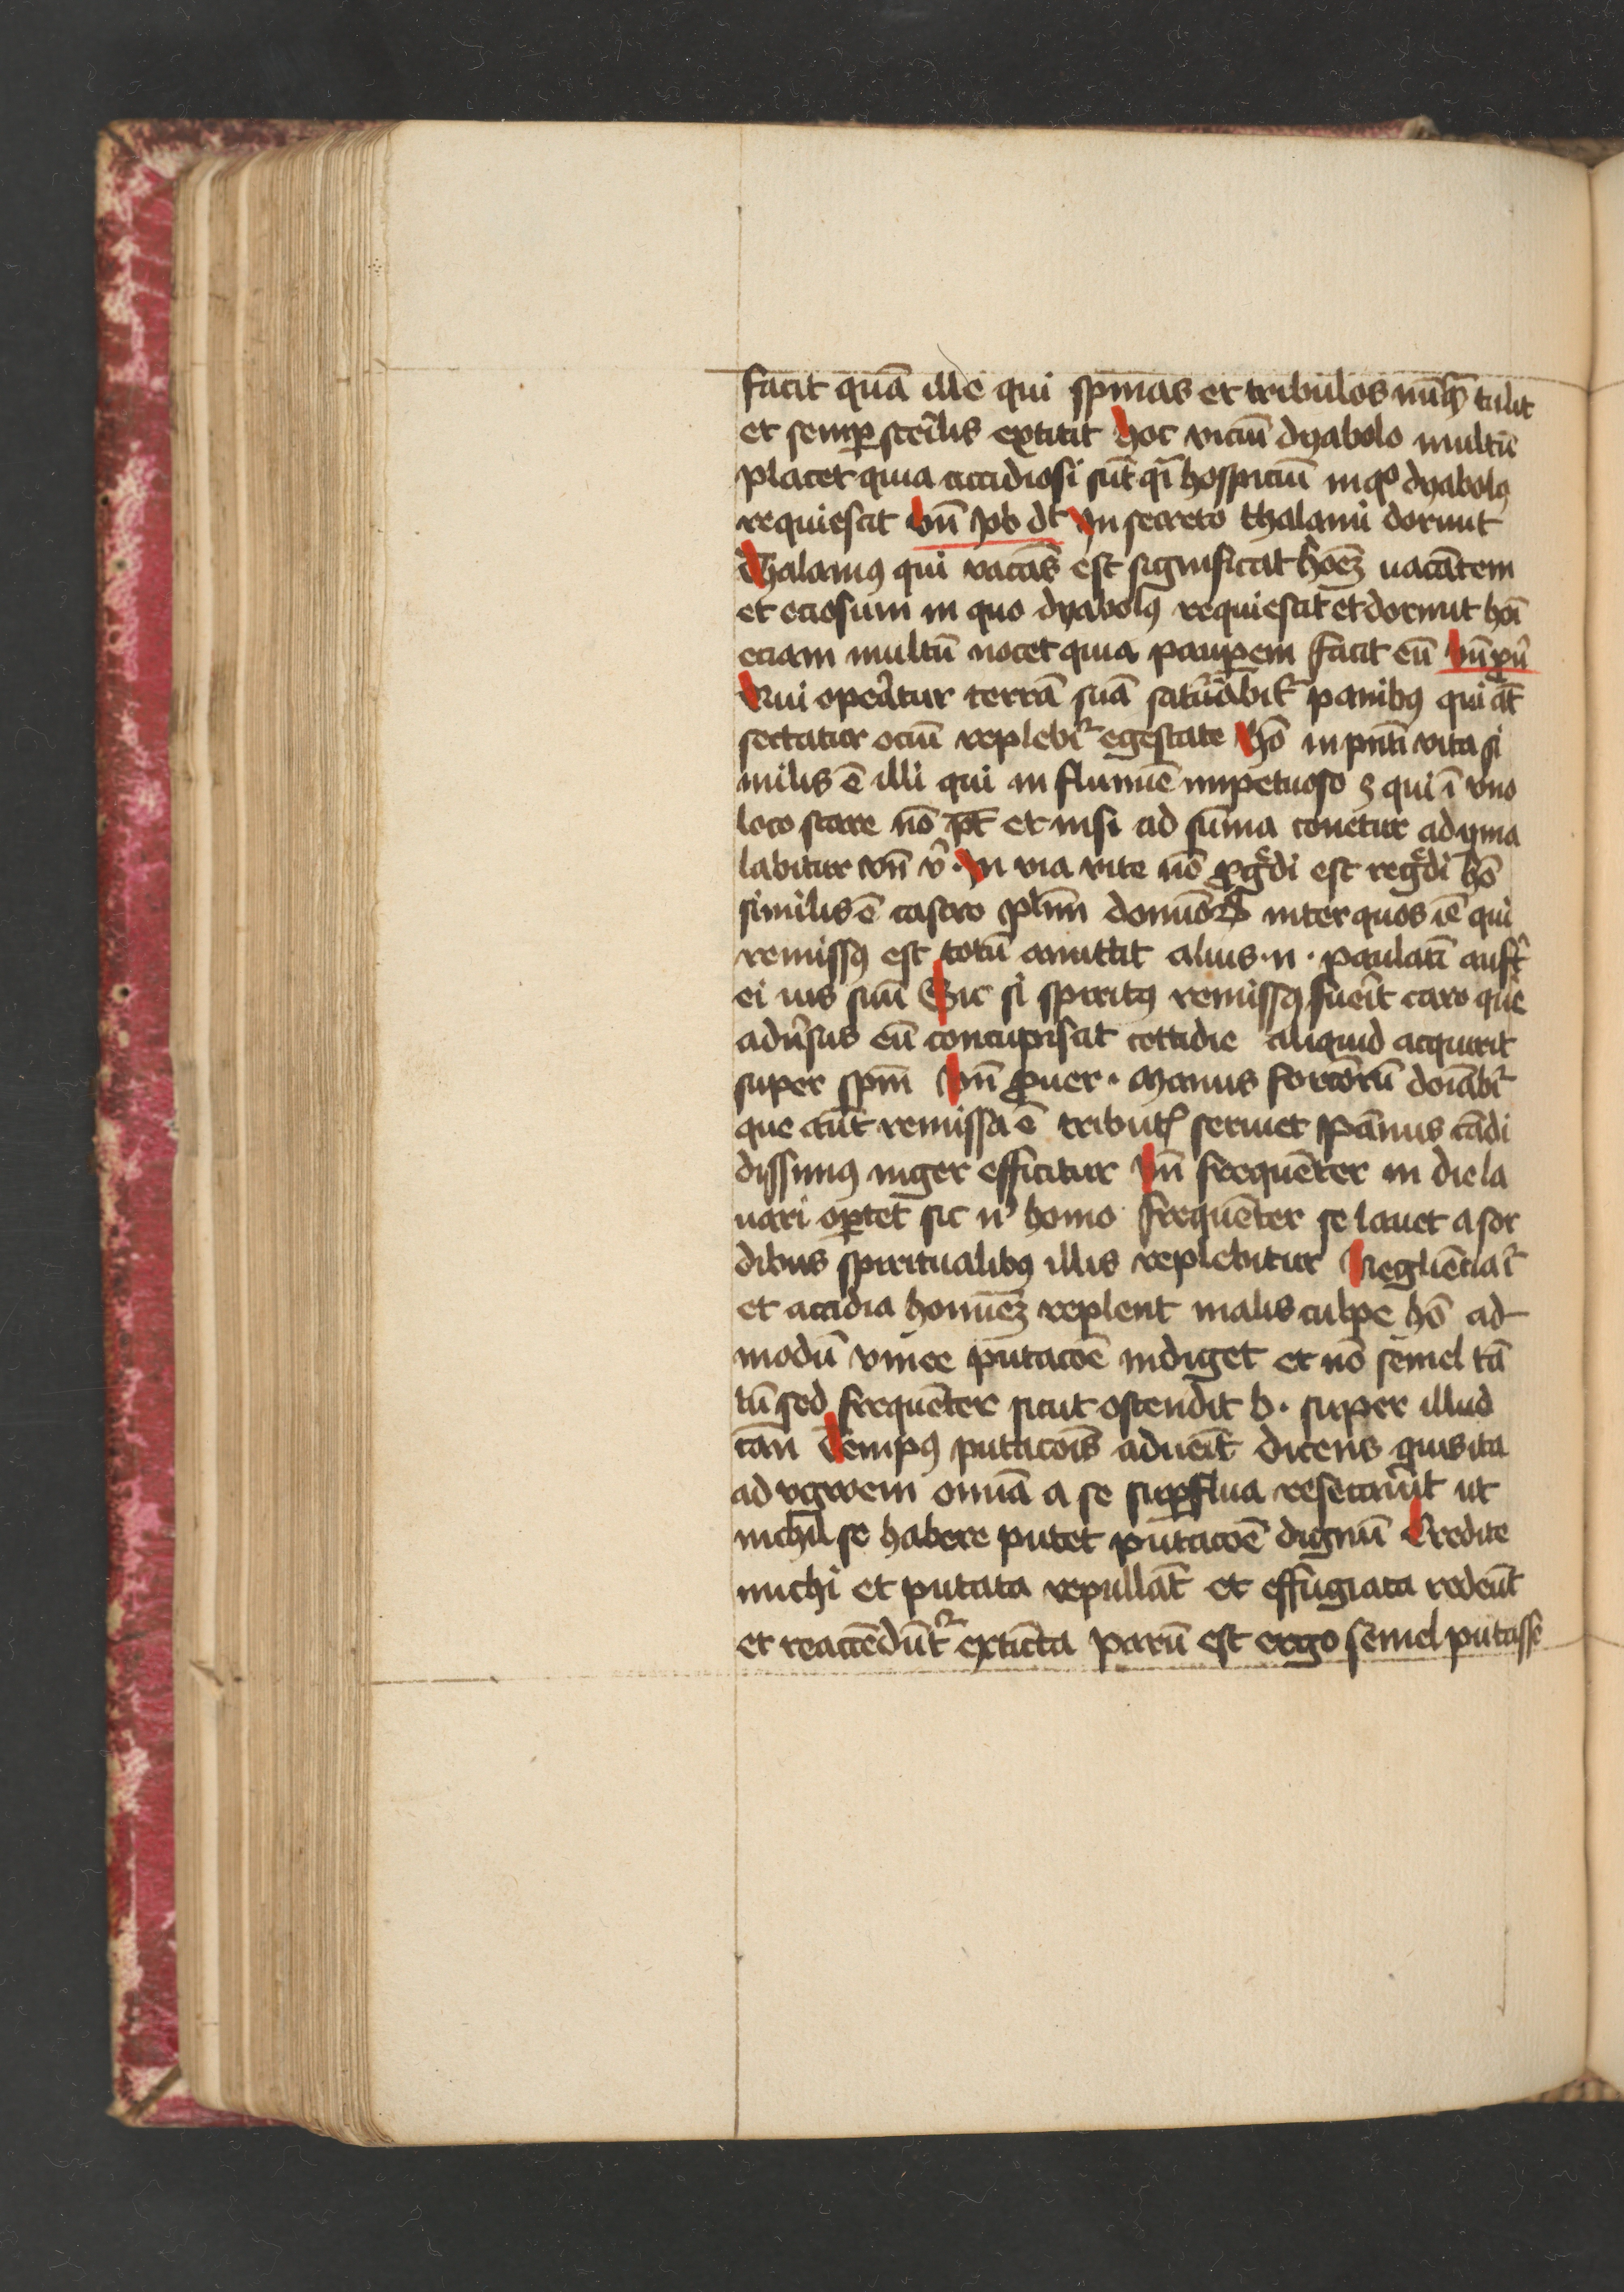 facit quā ille qui spinas et tribulos nūꝙ tulit
et semꝑ sterilis extitit hoc viciū dyabolo multū
placet quia accidiosi sūt qī hospiciū in qͦ dyabolꝰ
requiescit vn̄ Job dt̄ In secreto thalami dormit
Thalamꝰ qui vacās est significat hoēꝫ uacātem
et ociosum in quo dyabolꝰ requiescit et dormit hoī
eciam multū nocet quia pauꝑem facit eū vn̄ pu̾
Qui opeᷓtur terrā suā satu̾abit̾ panibꝰ qui āt
sectatur ociū replebit̾ egestate hō in pn̄ti vita si
milis ē illi qui in flumīe impetuoso ꝫ qui ī vno
loco stare nō pt̄ et nisi ad sūma conetur ad yma
labitur vn̄ v̾ · In via vite nō ꝓgͤdi est regͤdi hō
similis ē castro plīm dominoꝝ inter quos is ē qui
remissꝰ est totū amittit alius · n · paulatī auft̾
ei ius suū Sic si spiritꝰ remissꝰ fuerit caro que
adu̾sus eū concupiscit cottidie aliquid acquirit
super spm̄ Vn̄ ꝓuer · Manus forciorū doīabit̾
que aūt remissa ē tributꝭ seruiet Pānus cādi
dissimꝰ niger efficitur Vn̄ frequēter in die la
uari oꝑtet sic nͥ homo frequēter se lauet a sor
dibus spiritualibꝰ illis replebitur Negliēcia
et accidia homīeꝫ replent malis culpe hō ad
modū vinee putacōe indiget et nō semel tā
tū sed frequēter sicut ostendit b · super illud
can̄ Tempꝰ putacōis aduēit dicens quis ita
ad vgwem omīa a se suꝑflua resecau̾it ut
nichil se habere putet putacōe dignū Credite
michi et putata repullāt et effugiata redeūt
et reaccēdūt̾ extincta parū est ergo semel putasse